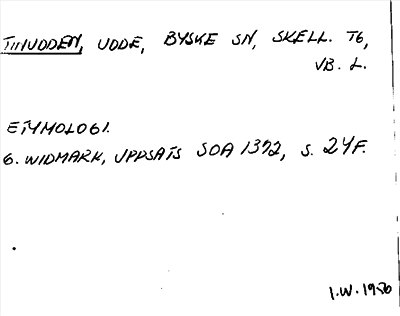 TIIUDDEN, UDDE, BYSKE SN, SKELL. TG,
VB. L.
ETYMOLOGI.
G. WIDMARK, UPPSATS SOA 1372, S. 24F.
I.W. 1980